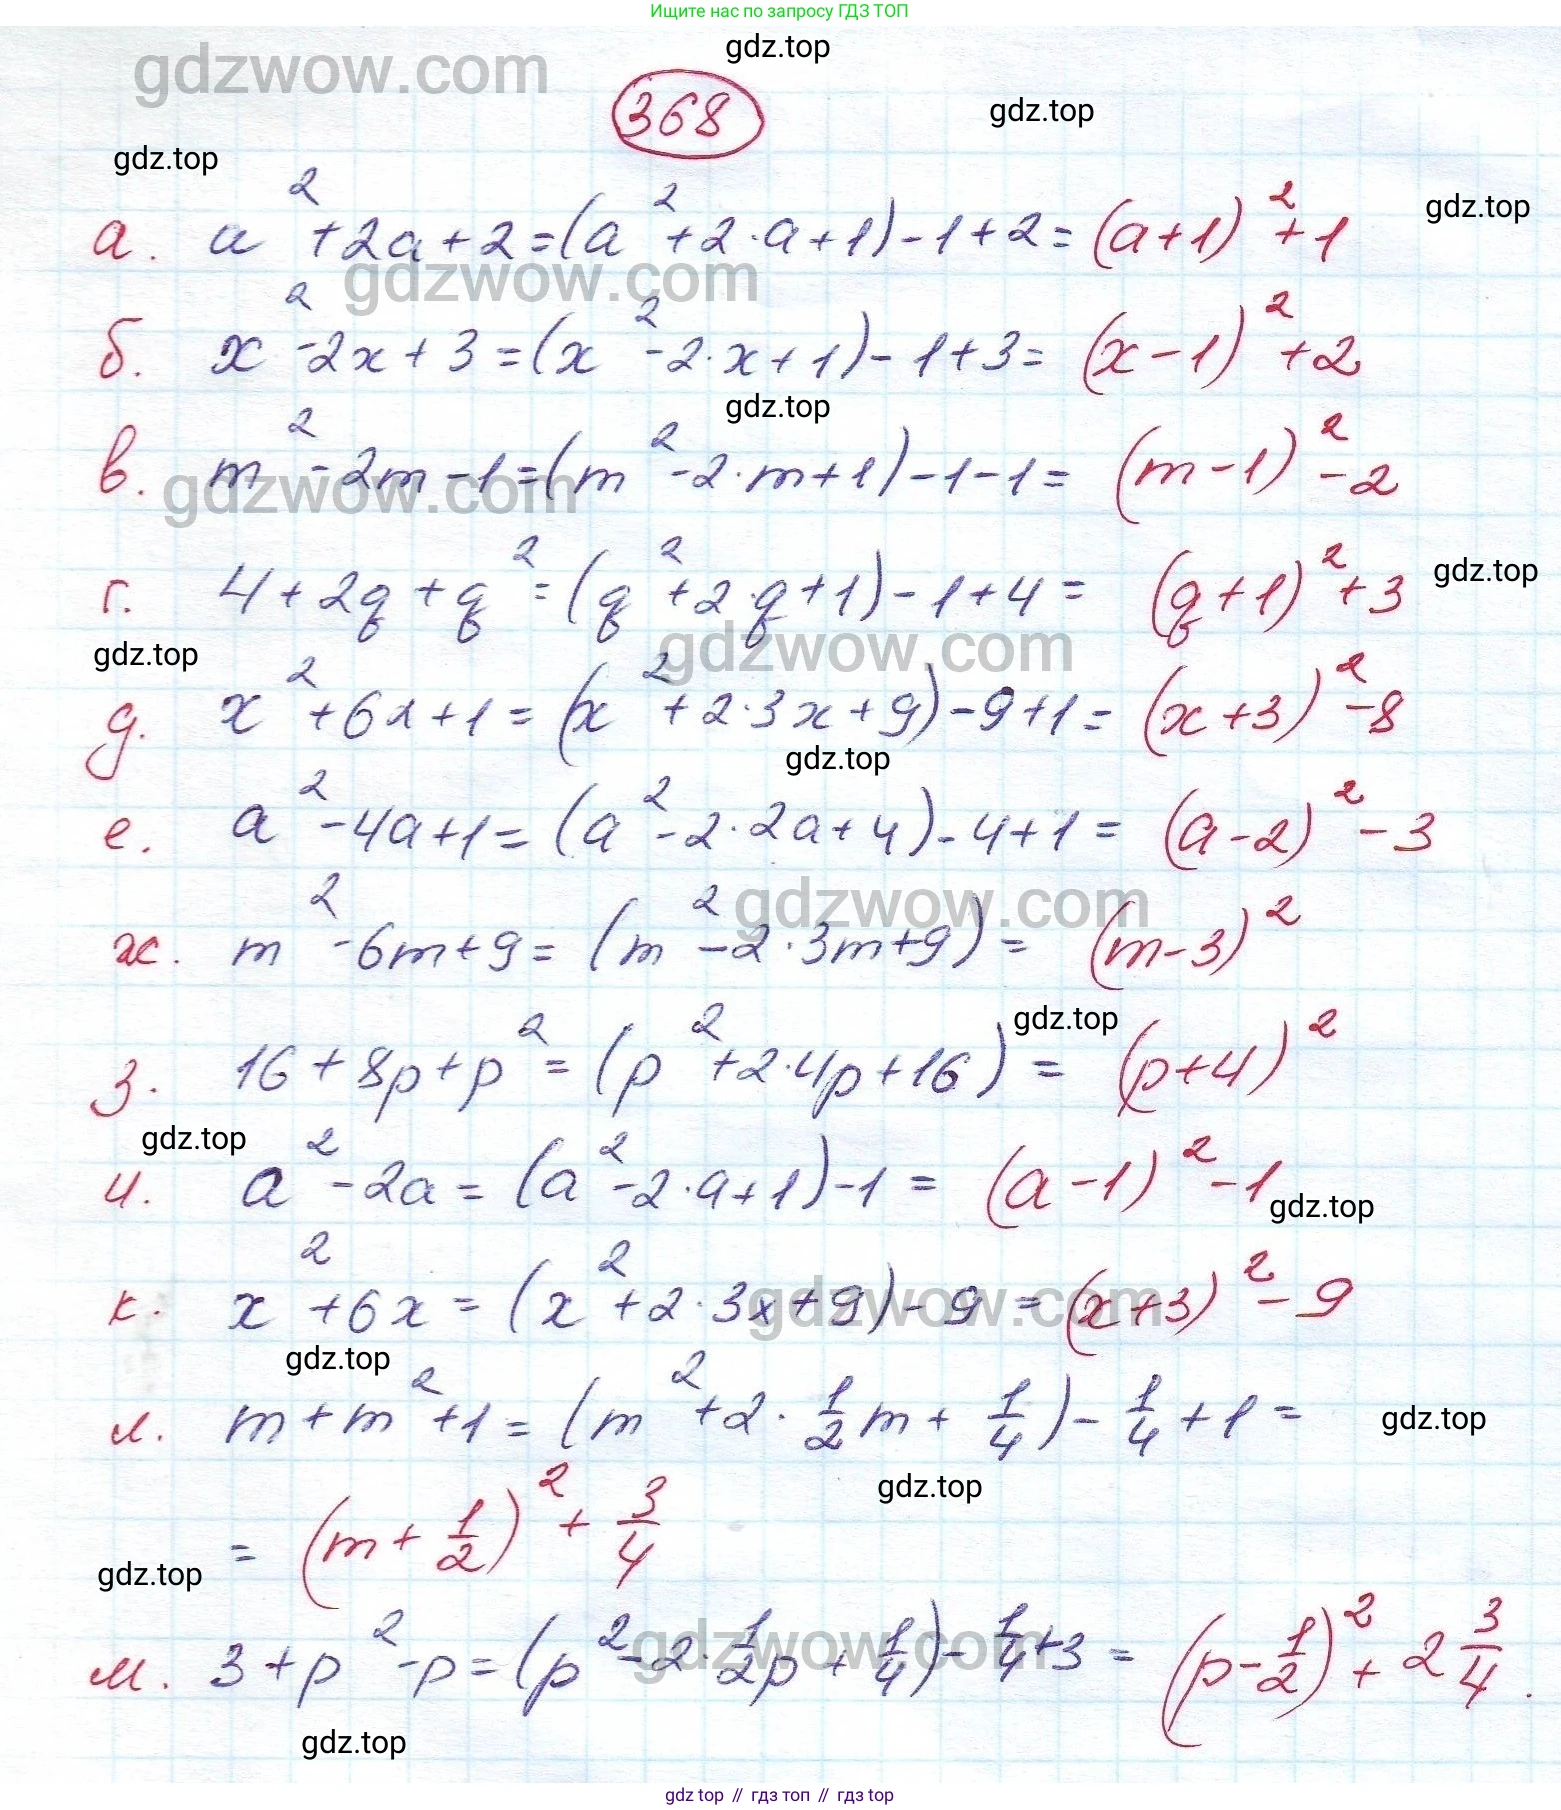 Ищите нас по запросу ГДЗ ТОП
gdz.top
gdzwow.com
368
gdz.top
gdz.top
а. a² + 2a + 2 = (a² + 2·a + 1) - 1 + 2 = (a + 1)² + 1
gdz.top
gdzwow.com
б. x² - 2x + 3 = (x² - 2·x + 1) - 1 + 3 = (x - 1)² + 2
gdz.top
в. m² - 2m - 1 = (m² - 2·m + 1) - 1 - 1 = (m - 1)² - 2
gdzwow.com
г. 4 + 2q + q² = (q² + 2·q + 1) - 1 + 4 = (q + 1)² + 3
gdz.top
gdz.top
gdzwow.com
д. x² + 6x + 1 = (x² + 2·3x + 9) - 9 + 1 = (x + 3)² - 8
gdz.top
е. a² - 4a + 1 = (a² - 2·2a + 4) - 4 + 1 = (a - 2)² - 3
gdzwow.com
ж. m² - 6m + 9 = (m² - 2·3m + 9) = (m - 3)²
gdz.top
з. 16 + 8p + p² = (p² + 2·4p + 16) = (p + 4)²
gdz.top
и. a² - 2a = (a² - 2·a + 1) - 1 = (a - 1)² - 1
gdz.top
к. x² + 6x = (x² + 2·3x + 9) - 9 = (x + 3)² - 9
gdzwow.com
gdz.top
л. m + m² + 1 = (m² + 2·1/2m + 1/4) - 1/4 + 1 =
gdz.top
gdz.top
= (m + 1/2)² + 3/4
gdz.top
м. 3 + p² - p = (p² - 2·1/2p + 1/4) - 1/4 + 3 = (p - 1/2)² + 2 3/4.
gdzwow.com
gdz.top
gdz top // гдз топ // гдз top